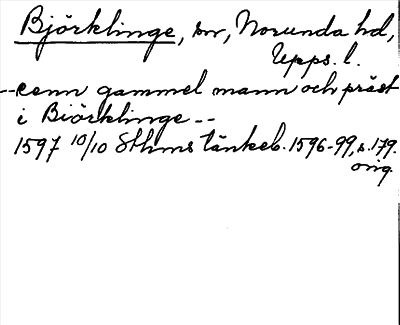 Björklinge, sn, Norunda hd,
Upps. l.
--cenn gammel mann och präst
i Biörklinge--
1597 10/10 Sthms tänkeb. 1596-99, s. 179.
orig.